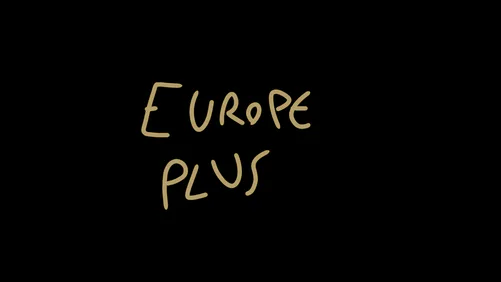 EUROPE
PLUS